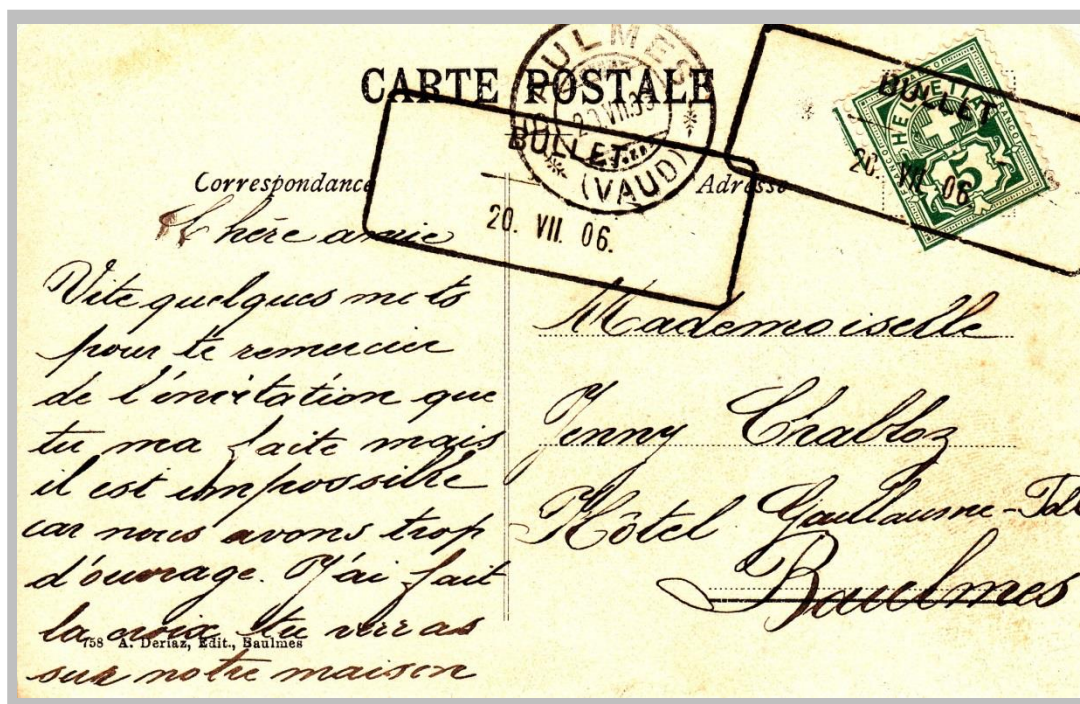 CARTE POSTALE
BAULMES
20 VII.
(VAUD)
BULLET
20. VII. 06.
BULLET
20. VII. 06
HELVETIA
FRANCO
5
Correspondance
Adresse
Chère amie
Vite quelques mots
pour te remercier
de l'invitation que
tu ma faite mais
il est impossible
car nous avons trop
d'ouvrage. J'ai fait
la croix tu verras
sur notre maison
758 A. Deriaz, Edit., Baulmes
Mademoiselle
Jenny Chabloz
Hôtel Guillaume-Tell
Baulmes